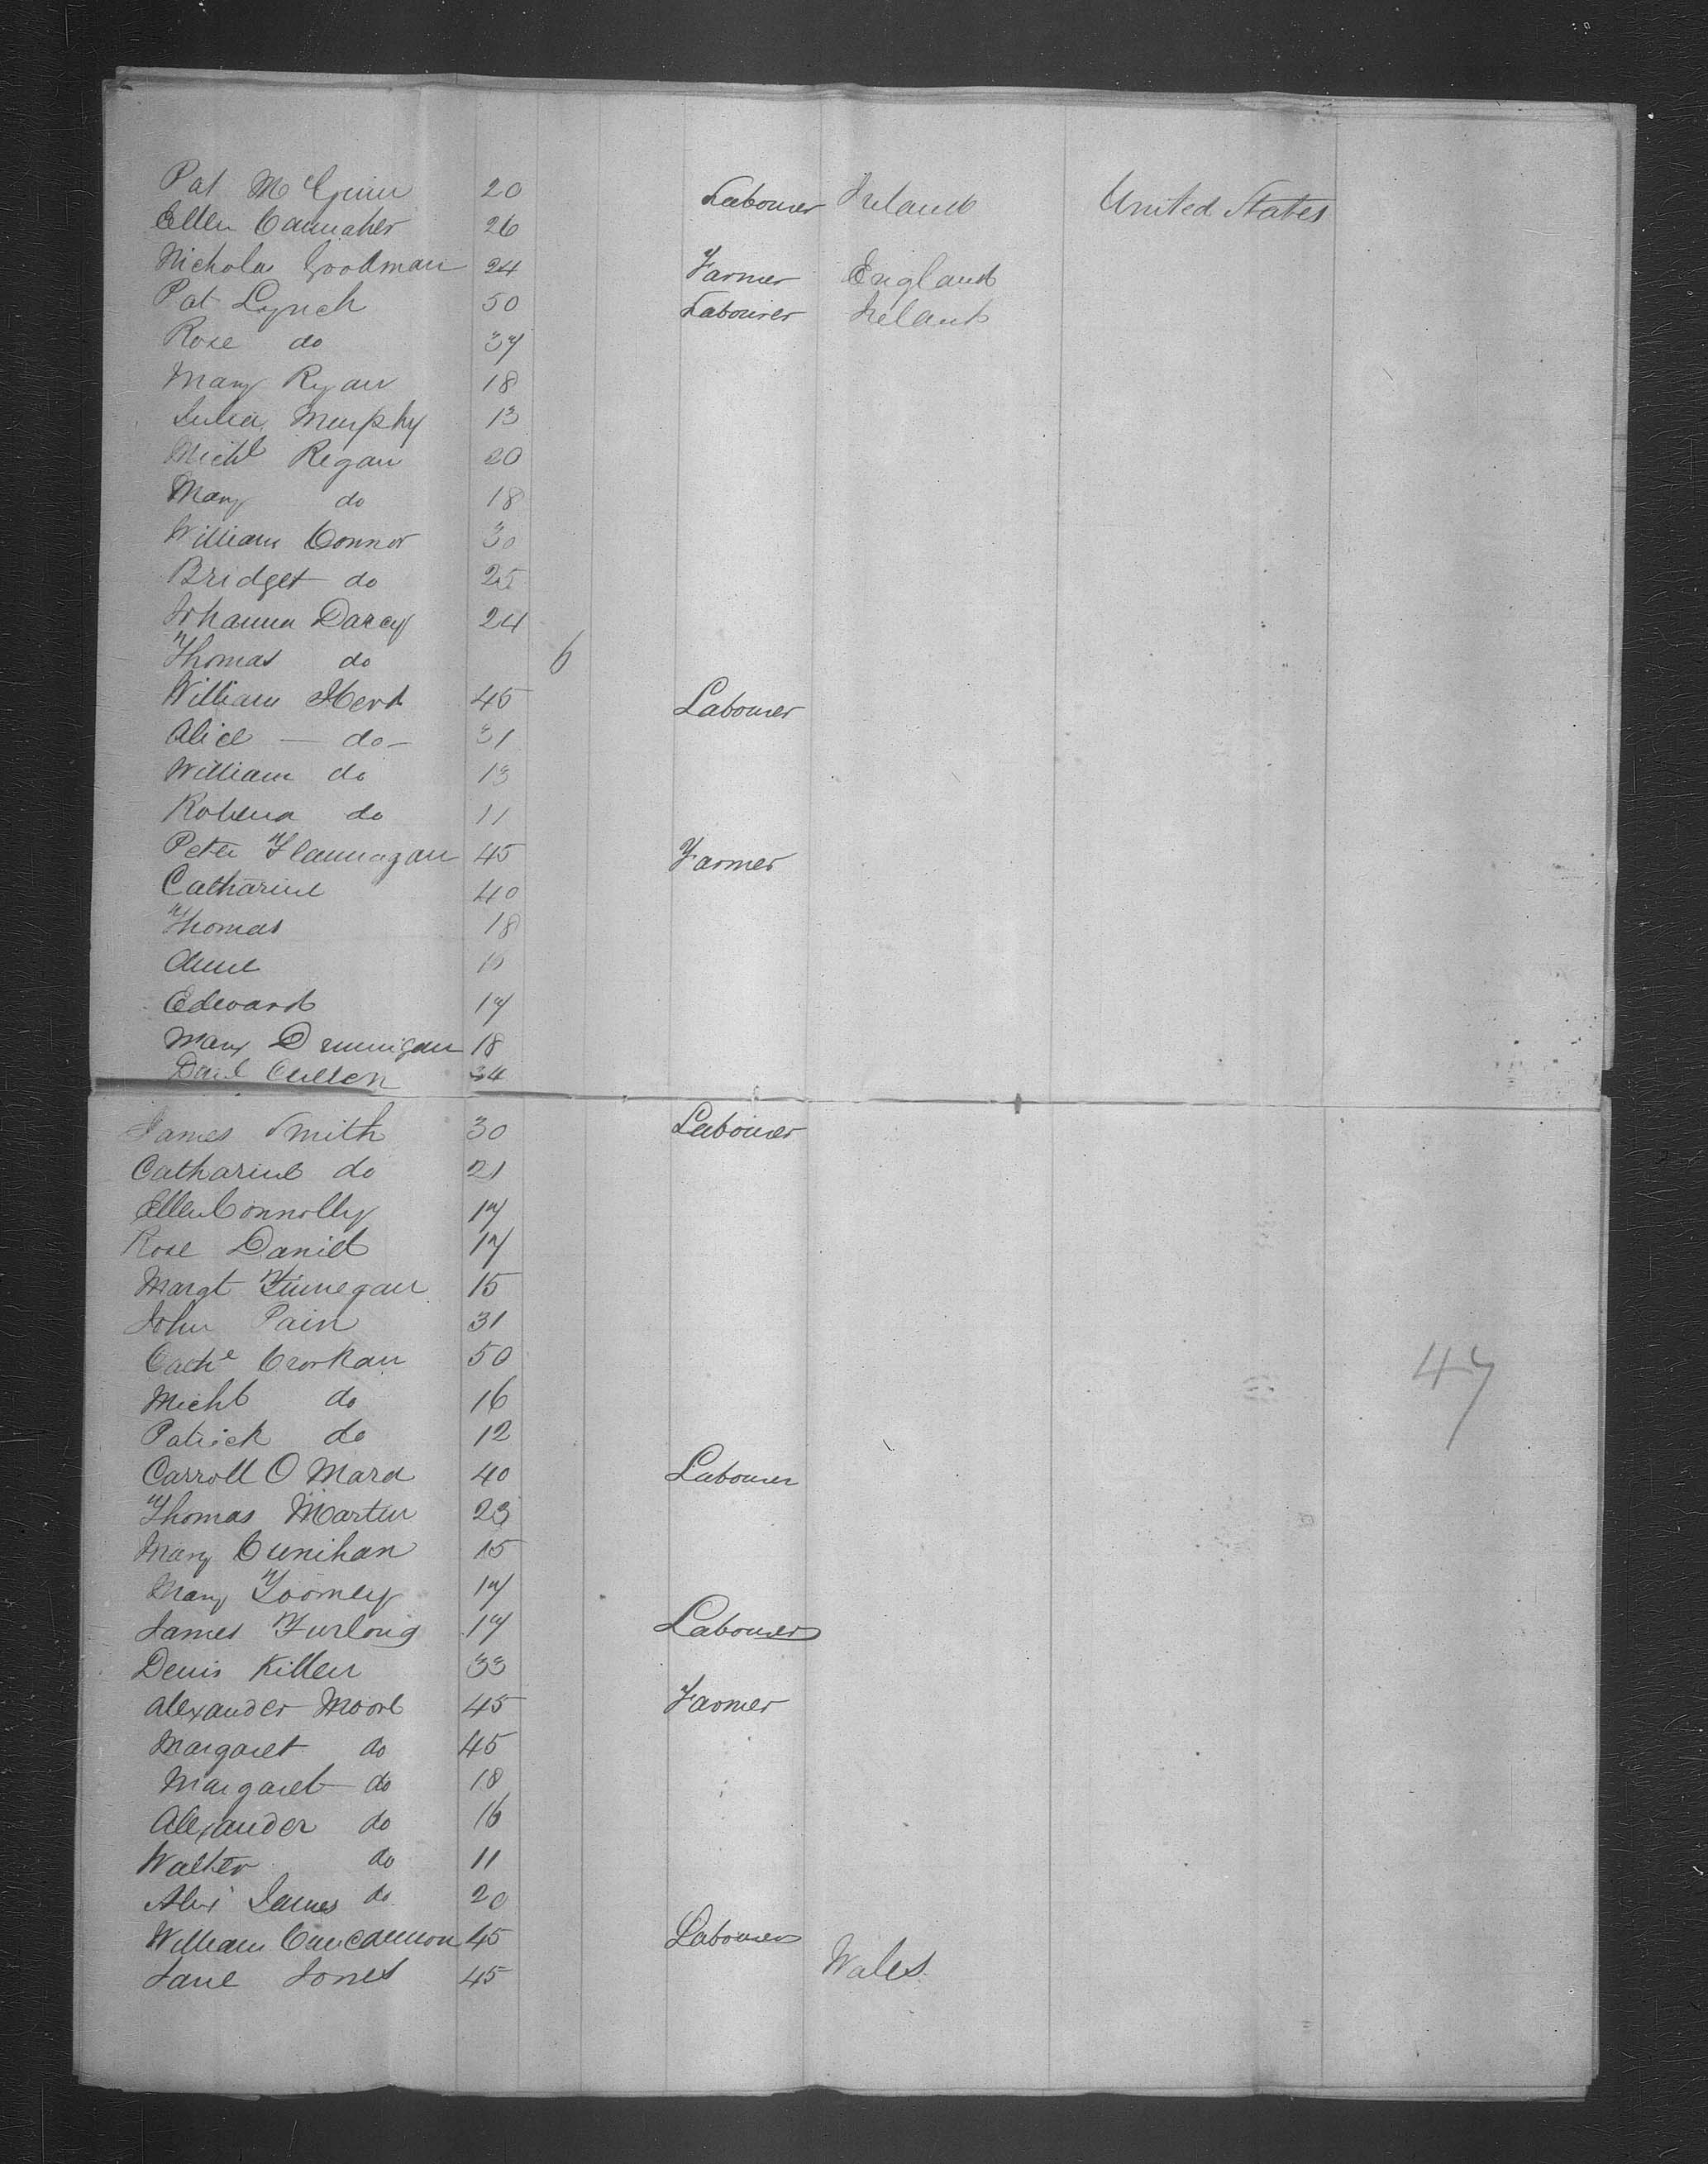 Pat McGinn 20 Labourer Ireland United States
Ellen Cannaher 26
Nicholas Goodman 24 Farmer England
Pat Lynch 50 Labourer Ireland
Rose do 37
Mary Ryan 18
Julia Murphy 13
Michl Regan 20
Mary do 18
William Connor 30
Bridget do 25
Johanna Darcy 24
Thomas do 6
William 45 Labourer
Alice — do — 31
William do 13
do 11
Peter Flannagan 45 Farmer
Catharine 40
Thomas 18
Anne
Edward 17
Mary 18
Cullen 34
James Smith 30 Labourer
Catharine do 21
Ellen Connolly 17
Rose Daniel 17
Margt Finnegan 15
John Pain 31
Cathe Crorkan 50
Michl do 16
Patrick do 12
Carroll O Mara 40 Labourer
Thomas Martin 23
Mary Cunihan 15
Mary Toomey 17
James Furlong 17 Labourer
Denis Killen 33
Alexander Moore 45 Farmer
Margaret do 45
Margaret do 18
Alexander do 16
Walter do 11
Alex James do 20
William Concannon 45 Labourer
Jane Jones 45 Wales
47